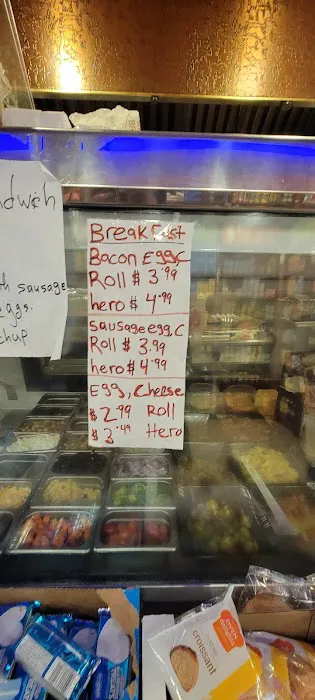 ndwich
th sausage
eggs.
chup
Breakfast
Bacon Egg, C
Roll $ 3.99
hero $ 4.99
sausage egg, C
Roll $ 3.99
hero $ 4.99
Egg, Cheese
$ 2.99 Roll
$ 3.49 Hero
croissant